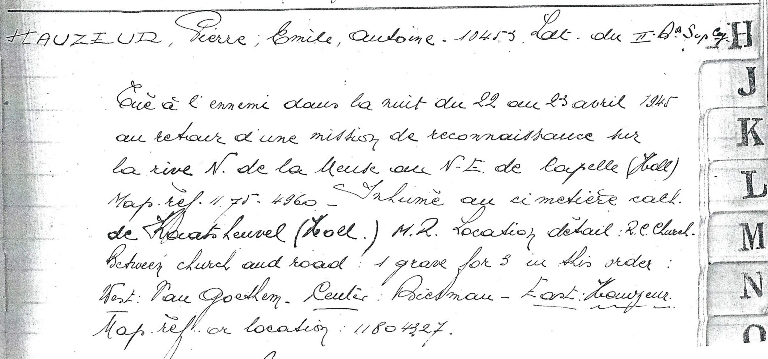 HAUZEUR, Pierre, Emile, Antoine. 10453 Ldt. du II Bn
H
J
K
L
M
N
O
Tué à l'ennemi dans la nuit du 22 au 23 avril 1945
au retour d'une mission de reconnaissance sur
la rive N. de la Meuse au N-E. de Capelle (Holl)
Map. réf. 1.75-4960 - Inhumé au cimetière cath.
de Kaatsheuvel (Holl.) M.R. Location détail : R.C. Church.
Between church and road : 1 grave for 3 in this order :
West : Van Goethem - Center : - East : Hauzeur.
Map. réf. or location : 11804327.